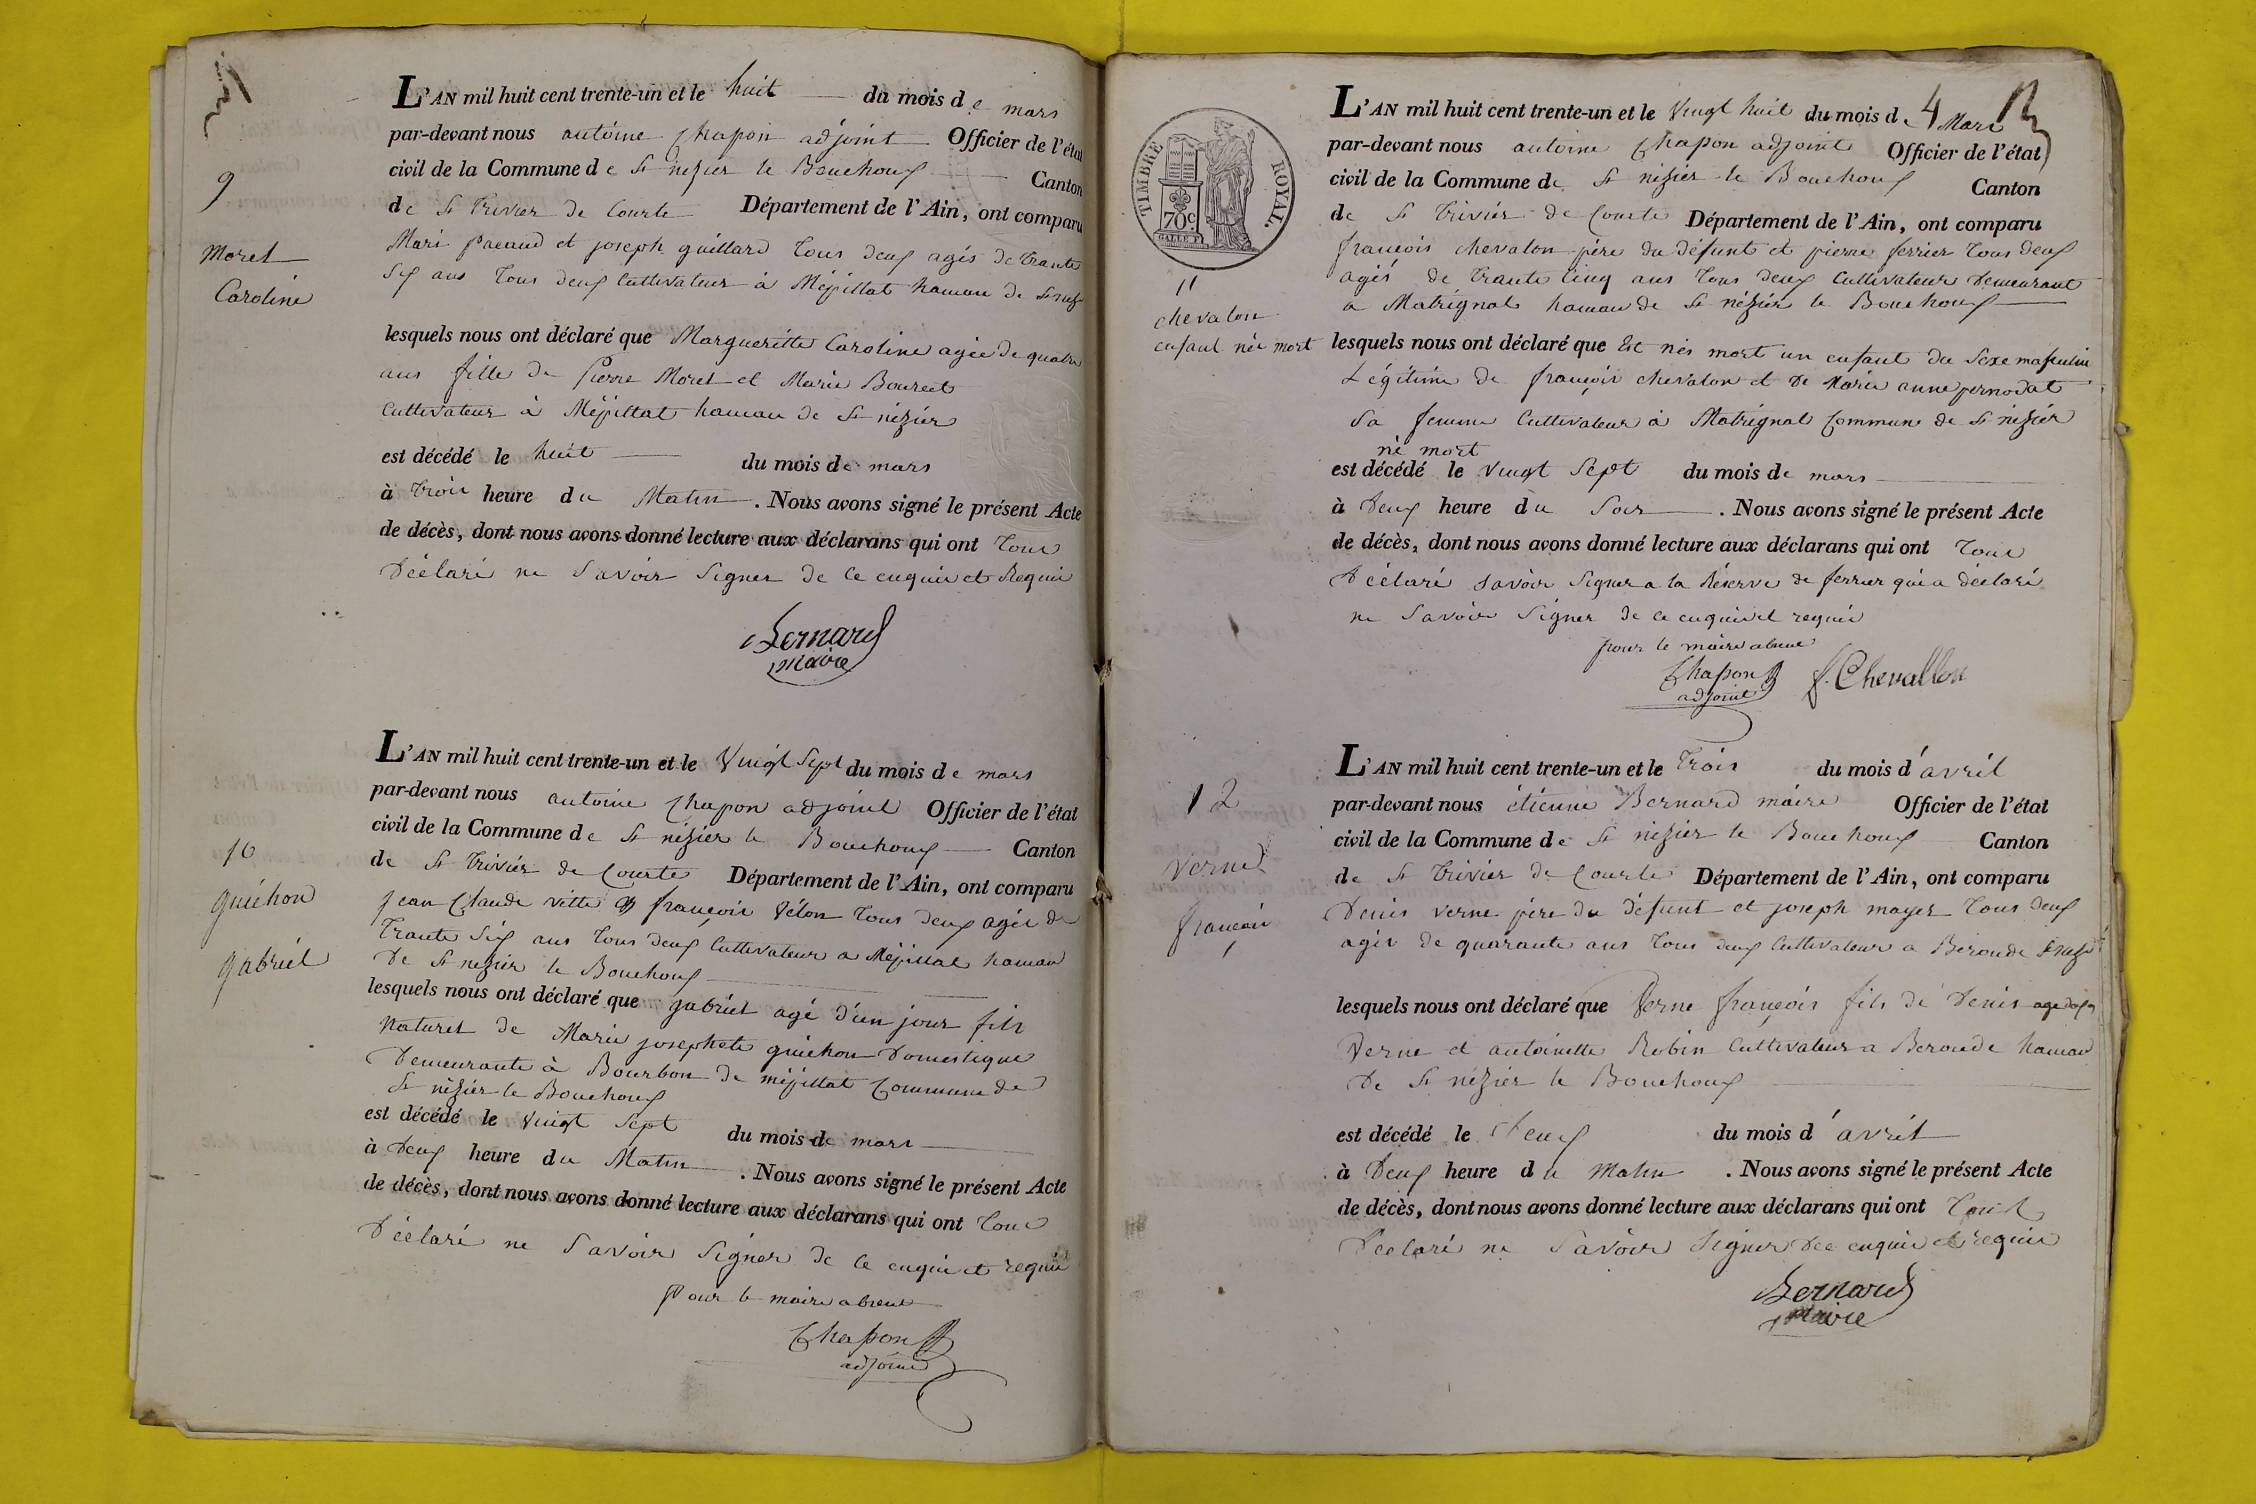 9
Moret
Caroline
L'AN mil huit cent trente-un et le huit du mois de mars
par-devant nous antoine Chapon adjoint Officier de l'état
civil de la Commune de St nizier le Bouchoux Canton
de St Trivier de Courte Département de l'Ain, ont comparu
Mari pacaud et joseph guillard tous deux agés de trante
six ans tous deux Cultivateur à Méjillat hamau de St niz
lesquels nous ont déclaré que Margueritte Caroline agée de quatre
ans fille de Pierre Moret et Marie Bourcet
Cultivateur à Méjillat hamau de St nizier
est décédé le huit du mois de mars
à trois heure du Matin. Nous avons signé le présent Acte
de décès, dont nous avons donné lecture aux déclarans qui ont tous
Déclaré ne Savoir Signer de ce enquis et Requis
Bernard
maire
10
guichon
gabriel
L'AN mil huit cent trente-un et le Vingt Sept du mois de mars
par-devant nous antoine Chapon adjoint Officier de l'état
civil de la Commune de St nizier le Bouchoux Canton
de St Trivier de Courte Département de l'Ain, ont comparu
jean Claude vitte françois Vélon tous deux agés de
trante Six ans tous deux Cultivateur a Méjillat hamau
De St nizier le Bouchoux
lesquels nous ont déclaré que gabriel agé d'un jour fils
naturel de Marie josephete guichon Domestique
Demeurante à Bourbon de méjillat Commune de
St nizier le Bouchoux
est décédé le vingt Sept du mois de mars
à Deux heure du Matin. Nous avons signé le présent Acte
de décès, dont nous avons donné lecture aux déclarans qui ont tous
Déclaré ne Savoir Signer de ce enquis et requis
Pour le maire absent
Chapon
adjoint
TIMBRE ROYAL.
70c
4
11
chevalon
enfant née mort
L'AN mil huit cent trente-un et le Vingt huit du mois de Mars
par-devant nous antoine Chapon adjoint Officier de l'état
civil de la Commune de St nizier le Bouchoux Canton
de St Trivier de Courte Département de l'Ain, ont comparu
françois chevalon père du défunt et pierre ferrier tous deux
agés de trante Cinq ans tous deux Cultivateur Demeurant
a Matrignat hamau de St nizier le Bouchoux
lesquels nous ont déclaré que Est nés mort un enfant du Sexe masculin
Légitime de françois chevalon et De Marie anne pernodat
Sa femme Cultivateur à Matrignat Commune de St nizier
né mort
est décédé le vingt Sept du mois de mars
à Deux heure du Soir. Nous avons signé le présent Acte
de décès, dont nous avons donné lecture aux déclarans qui ont tous
Déclaré savoir Signer a la Réserve de ferrier qui a déclaré
ne Savoir Signer de ce enquis et requis
pour le maire absent
Chapon f. Chevallon
adjoint
12
Verne
françois
L'AN mil huit cent trente-un et le Trois du mois d'avril
par-devant nous étienne Bernard maire Officier de l'état
civil de la Commune de St nizier le Bouchoux Canton
de St Trivier de Courte Département de l'Ain, ont comparu
Denis verne père du défunt et joseph mayer tous deux
agés de quarante ans tous deux Cultivateur a Beroude St niz
lesquels nous ont déclaré que Verne françois fils de Denis
Verne et antoinette Robin Cultivateur a Beroude hamau
De St nizier le Bouchoux
est décédé le Deux du mois d'avril
à Deux heure du Matin. Nous avons signé le présent Acte
de décès, dont nous avons donné lecture aux déclarans qui ont tous
Déclaré ne Savoir Signer Dce enquis et requis
Bernard
maire